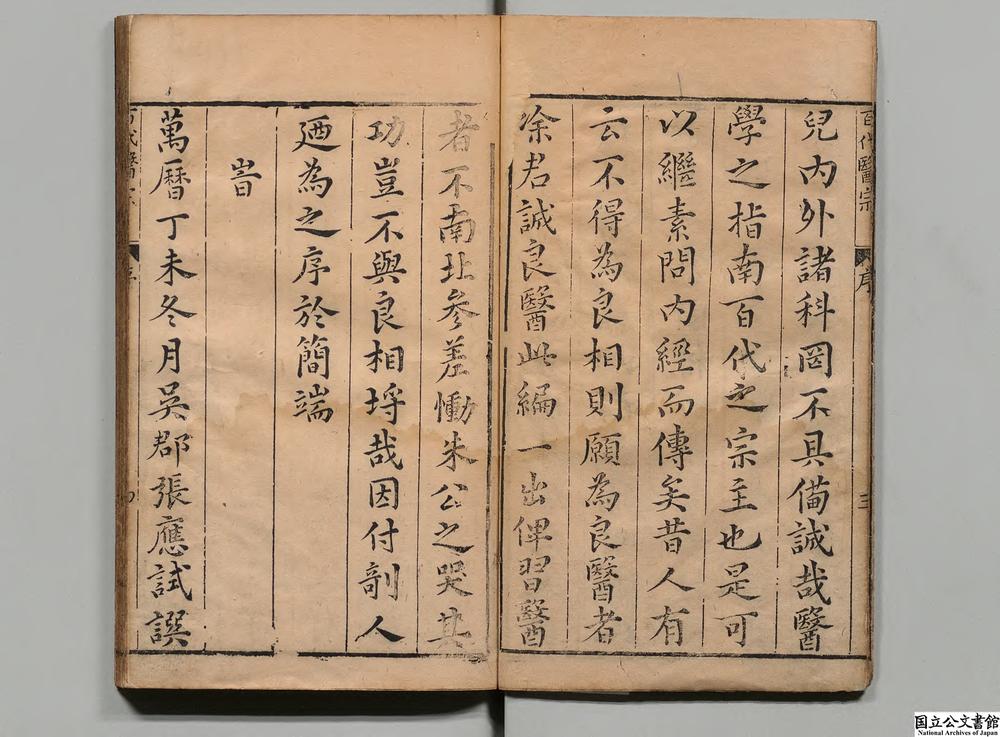 百代醫宗
序
三
兒內外諸科罔不具備誠哉醫
學之指南百代之宗主也是可
以繼素問內經而傳矣昔人有
云不得為良相則願為良醫者
徐君誠良醫此編一出俾習醫
者不南北參差慟朱公之哭其
功豈不與良相埒哉因付剞人
廼為之序於簡端
旹
萬曆丁未冬月吳郡張應試譔
序
国立公文書館
National Archives of Japan